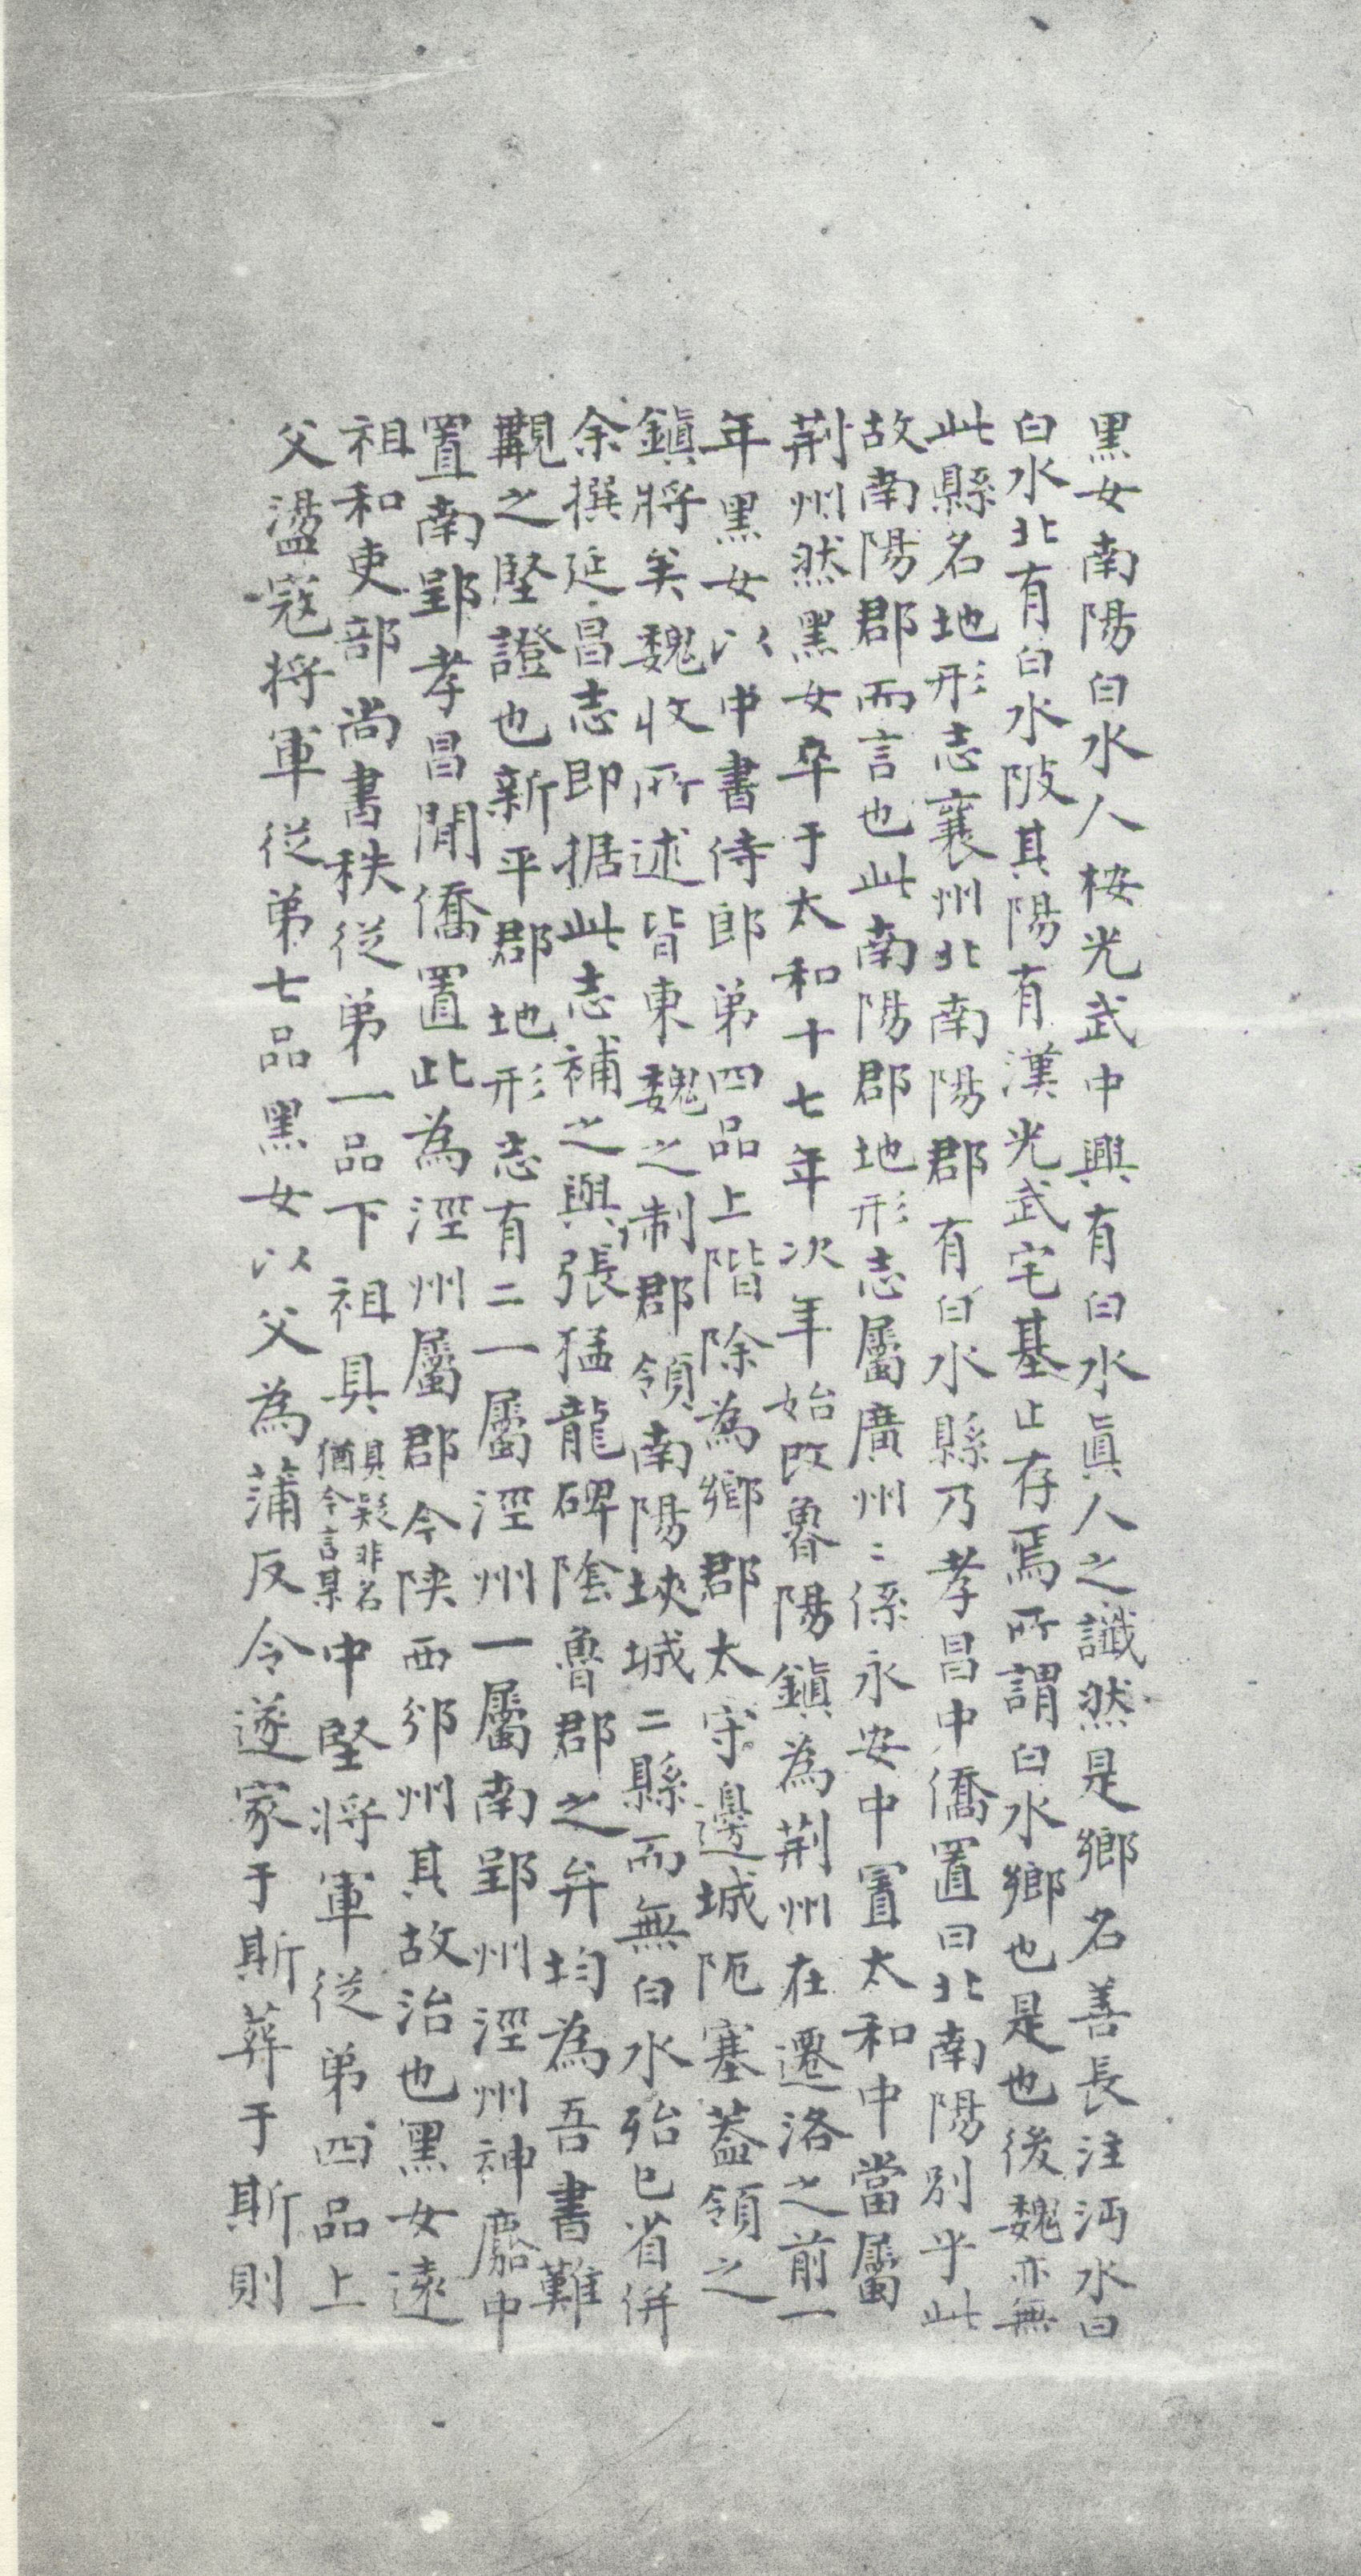 黑女南陽白水人桉光武中興有白水眞人之讖然是鄉名善長注沔水曰
白水北有白水陂其陽有漢光武宅基止存焉所謂白水鄉也是也後魏亦無
此縣名地形志襄州北南陽郡有白水縣乃孝昌中僑置曰北南陽別乎此
故南陽郡而言也此南陽郡地形志屬廣州〻係永安中置太和中當屬
荆州然黑女卒于太和十七年次年始改魯陽鎮為荆州在遷洛之前一
年黑女以中書侍郎弟四品上階除為鄉郡太守邊城阨塞葢領之
鎮將矣魏收所述皆東魏之制郡領南陽埉城二縣而無白水殆已省併
余撰延昌志即据此志補之與張猛龍碑陰魯郡之弁均為吾書難
覯之堅證也新平郡地形志有二一屬涇州一屬南郢州涇州神䴥中
置南郢孝昌閒僑置此為涇州屬郡今陝西邠州其故治也黑女遠
祖和吏部尚書秩從弟一品下祖具具疑非名猶今言某中堅將軍從弟四品上
父盪寇將軍從弟七品黑女以父為蒲反令遂家于斯葬于斯則